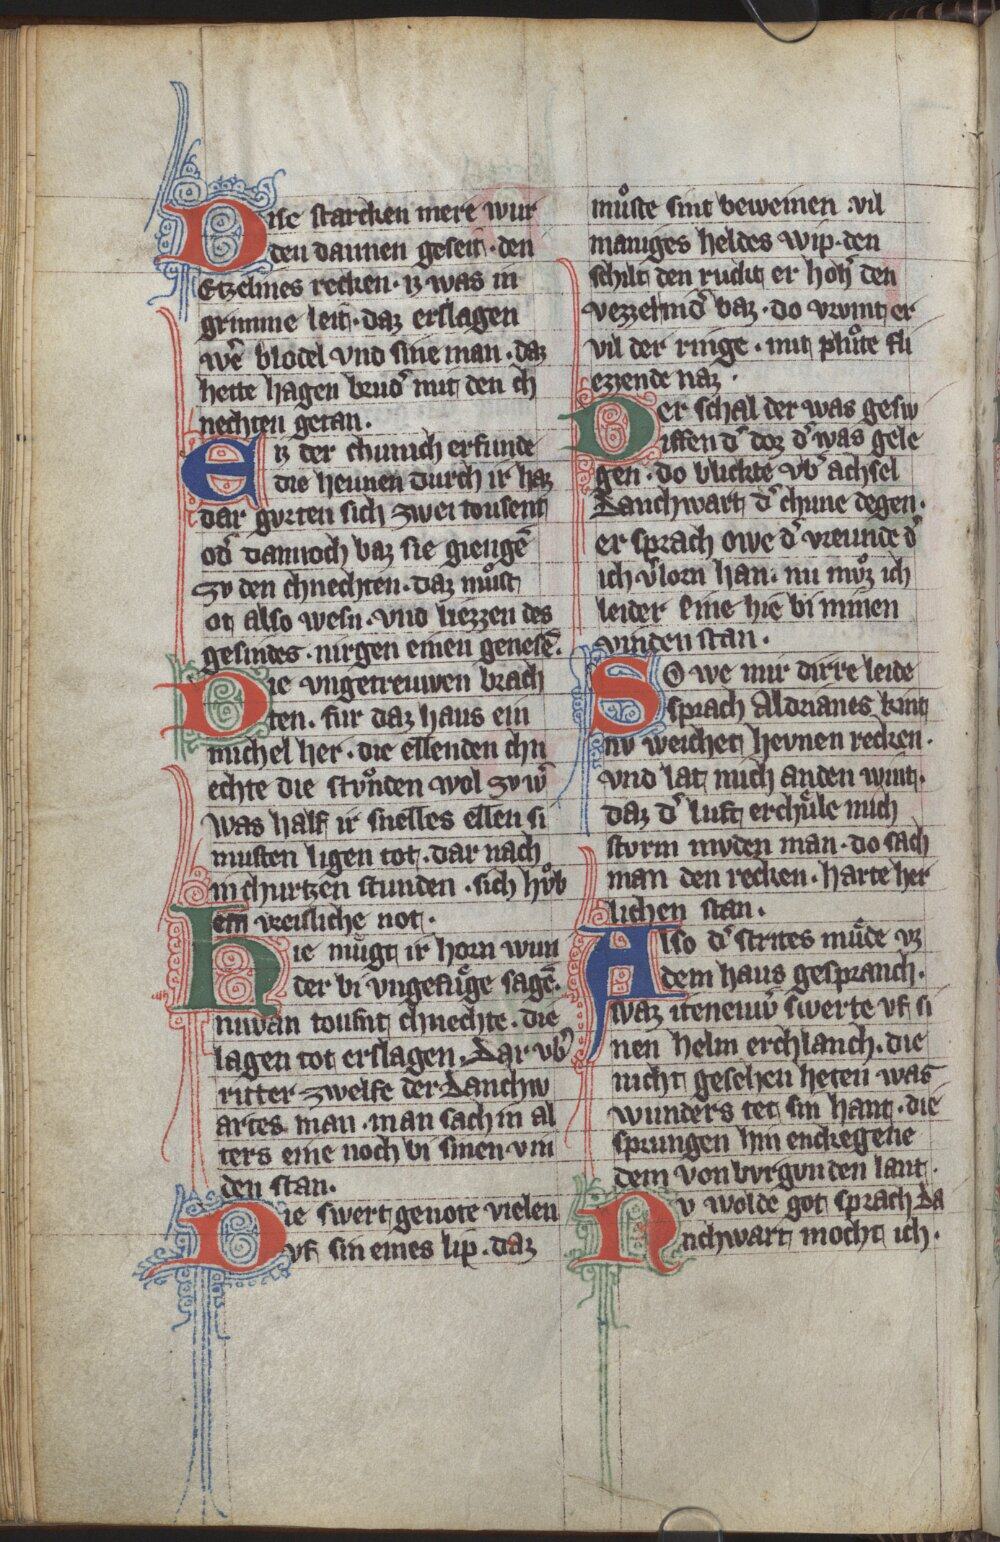 Dise starcken mere wur
den dannen geseit · den
Etzelines recken · iz was in
grimme leit · daz erslagen
we̅ blodel vnd sine man · daz
hette hagen brud̓ mit den ch
nechten getan .
E iz der chunich erfunde
die heunen durch ir haz
dar gurten sich zwei tousent
od̓ dannoch baz sie gienge̅
zv den chnechten · daz můst
ot also wesn · vnd liezzen des
gesindes · nirgen einen genese̅ .
Die vngetreuwen brach
ten . fur daz haus ein
michel her · die ellenden chn
echte die stvnden wol zv w̓
was half ir snelles ellen si
musten ligen tot · dar nach
in churtzen stunden · sich hv̊b
ein vreisliche not ·
Hie mu̍gt ir horn wun
der bi vngefu̍ge sage̅ .
niwan tousnt chnechte · die
lagen tot erslagen . Dar vb̓
ritter zwelfe der Danchw
artes man · man sach in al
ters eine noch bi sinen vin
den stan .
Die swert genote vielen
vf sin eines lip . daz
můste sint beweinen · vil
maniges heldes wip · den
schilt den rucht er hoh̓ den
vezzelind̓ baz · do vrumt er
vil der ringe · mit plůte fli
ezzende naz ·
Der schal der was gesw
iften d̓ doz d̓ was gele
gen · do blickte vb̓ achsel
Danchwart d̓ chune degen ·
er sprach owe d̓ vreunde d̓
ich v̓lorn han · nu mv̊z ich
leider eine hie bi minen
vinden stan ·
SO we mir dirre leide
sprach Aldrianes kint
nv weichet hevnen recken ·
vnd lat mich anden wint ·
daz d̓ luft erchu̍le mich
stvrm mvden man · do sach
man den recken · harte her
lichen stan .
Also d̓ strites mu̍de vz
dem haus gespranch ·
waz iteneuw̓ swerte vf si
nen helm erchlanch · die
nicht gesehen heten was
wunders tet sin hant · die
sprungen hin enckegene
dem von bvrgvnden lant ·
Nv wolde got sprach Da
nchwart mocht ich ·